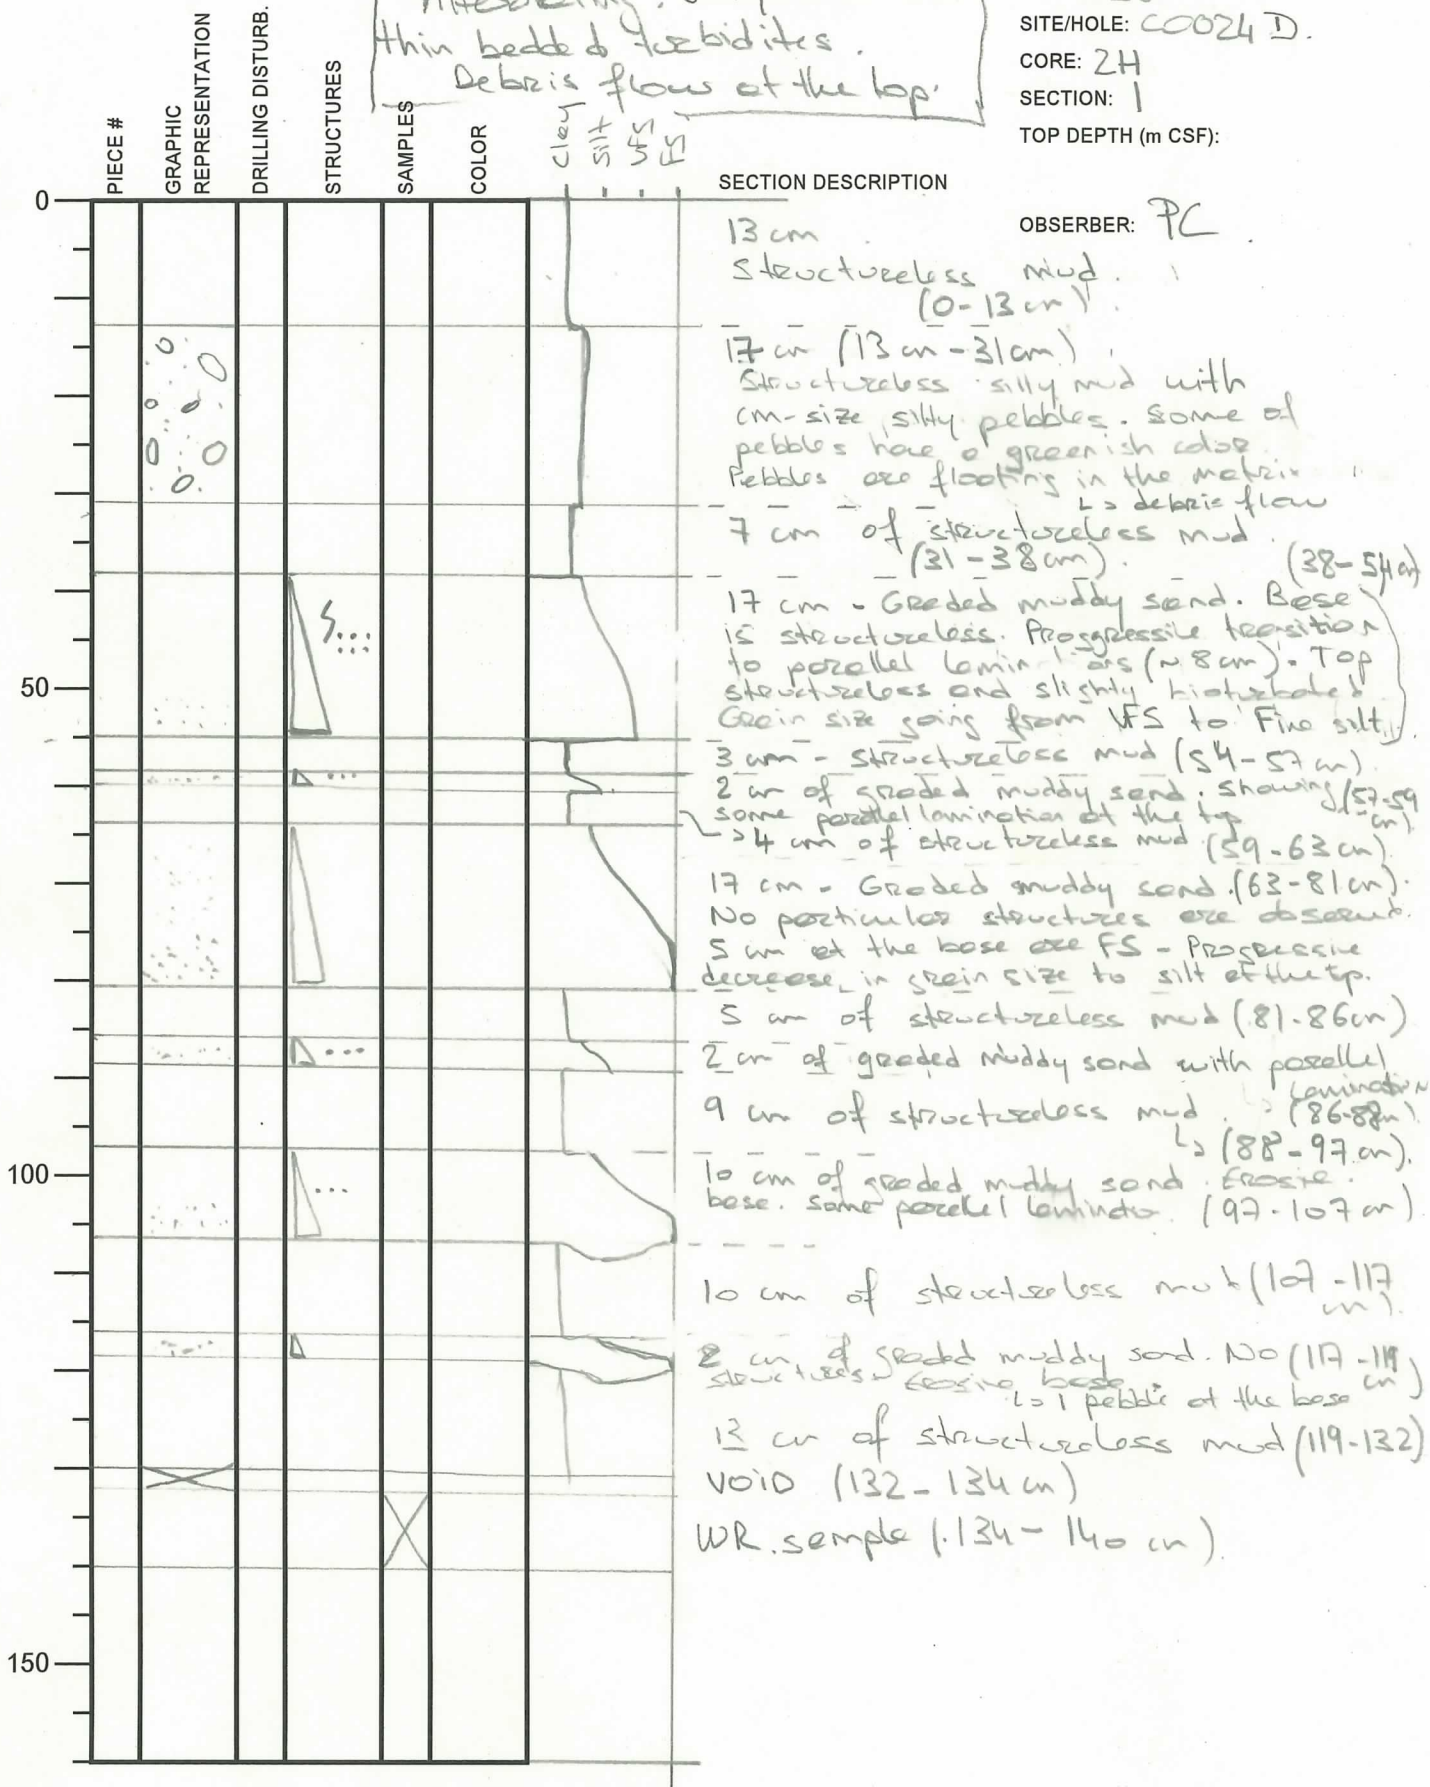 thin bedded turbidites.
Debris flow at the top.
SITE/HOLE: C0024 D.
CORE: 2H
SECTION: 1
TOP DEPTH (m CSF):
PIECE #
GRAPHIC
REPRESENTATION
DRILLING DISTURB.
STRUCTURES
SAMPLES
COLOR
Clay
Silt
VFS
FS
SECTION DESCRIPTION
OBSERBER: PC
0
50
100
150
13 cm
Structureless mud.
(0-13 cm)
17 cm (13 cm - 31 cm)
Structureless silty mud with
cm-size silty pebbles. Some of
pebbles have a greenish color
Pebbles are floating in the matrix
↳ debris flow
7 cm of structureless mud.
(31-38 cm).
(38-54 cm)
17 cm - Graded muddy sand. Base
is structureless. Proggressive transition
to parallel (~ 8 cm). Top
structureless and slighty bioturbated
Grain size going from VFS to Fine silt.
3 cm - Structureless mud (54-57 cm).
2 cm of graded muddy sand. Showing (57-59 cm)
some parallel lamination at the top
→ 4 cm of structureless mud (59-63 cm)
17 cm - Graded muddy sand. (63-81 cm).
No particular structures are observed.
5 cm at the base are FS - Progressive
decrease in grain size to silt at the top.
5 cm of structureless mud (81-86 cm)
2 cm of graded muddy sand with parallel
lamination
(86-88 cm)
9 cm of structureless mud.
↳ (88-97 cm).
10 cm of graded muddy sand. Erosive
base. Some parallel (97-107 cm)
10 cm of structureless mud (107-117
cm).
2 cm of graded muddy sand. No (117-119
cm)
structures. Erosive base.
↳ 1 pebble at the base
13 cm of structureless mud (119-132)
VOID (132-134 cm)
WR. sample (134-140 cm).